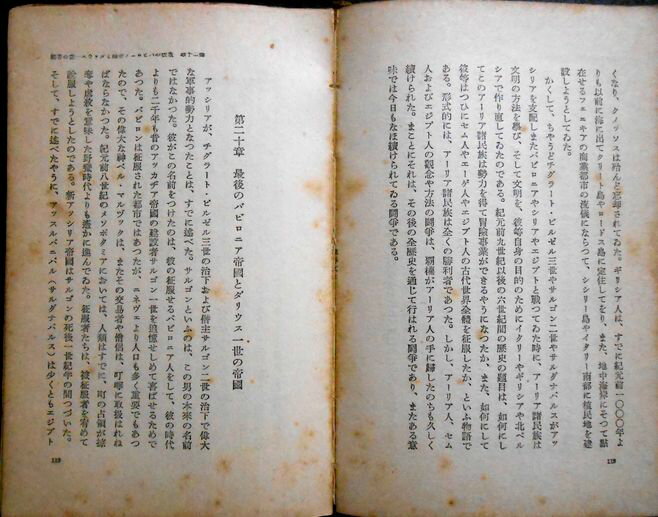 くなり、クノッソスは殆んど忘却されてゐた。ギリシア人は、すでに紀元前一〇〇〇年よ
りも以前に海に出てクリート島やロードス島に定住してをり、また、地中海岸にそつて點
在せるフェニキアの商業都市の流儀にならつて、シシリー島やイタリー南部に植民地を建
設しようとしてゐた。
かくして、ちやうどチグラート・ピルゼル三世やサルゴン二世やサルダナパルスがアッ
シリアを支配しまたバビロニアやシリアやエジプトと戰つてゐた時に、アーリア諸民族は
文明の方法を學び、そして文明を、彼等自身の目的のためにイタリーやギリシアや北ペル
シアで作り直してゐたのである。紀元前九世紀以後の六世紀間の歴史の題目は、如何にし
てこのアーリア諸民族は勢力を得て冒險事業ができるやうになつたか、また、如何にして
彼等はつひにセム人やエーゲ人やエジプト人の古代世界全體を征服したか、といふ物語で
ある。形式的には、アーリア諸民族は全くの勝利者であつた。しかし、アーリア人、セム
人およびエジプト人の觀念や方法の鬪爭は、覇權がアーリア人の手に歸したのちも久しく
續けられた。まことにそれは、その後の全歴史を通じて行はれる鬪爭であり、またある意
味では今日もなほ續けられてゐる鬪爭である。
第二十章 最後のバビロニア帝國とダリウス一世の帝國
アッシリアが、チグラート・ピルゼル三世の治下および僭主サルゴン二世の治下で偉大
な軍事的勢力となつたことは、すでに述べた。サルゴンといふのは、この男の本來の名前
ではなかつた。彼がこの名前をつけたのは、彼の征服せるバビロニア人をして、彼の時代
よりも二千年も昔のアッカヂア帝國の建設者サルゴン一世を追憶せしめて喜ばせるためで
あつた。バビロンは征服された都市ではあつたが、ニネヴェより人口も多く重要でもあつ
たので、その偉大な神ベル・マルヅックは、またその交易者や僧侶は、叮嚀に取扱はれね
ばならなかつた。紀元前八世紀のメソポタミアにおいては、人類はすでに、町の占領が掠
奪や虐殺を意味した野蠻時代よりも遙かに進んでゐた。征服者たちは、被征服者を宥めて
說服しようとしたのである。新アッシリア帝國はサルゴンの死後一世紀半の間つづいた。
そして、すでに述べたやうに、アッスルバニパル（サルダナパルス）は少くともエジプト